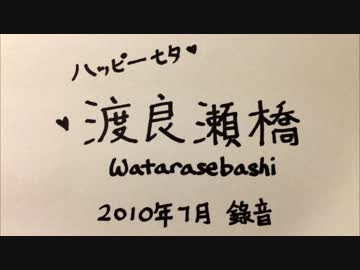 ハッピー七夕♥
♥渡良瀬橋
Watarasebashi
2010年7月 錄音